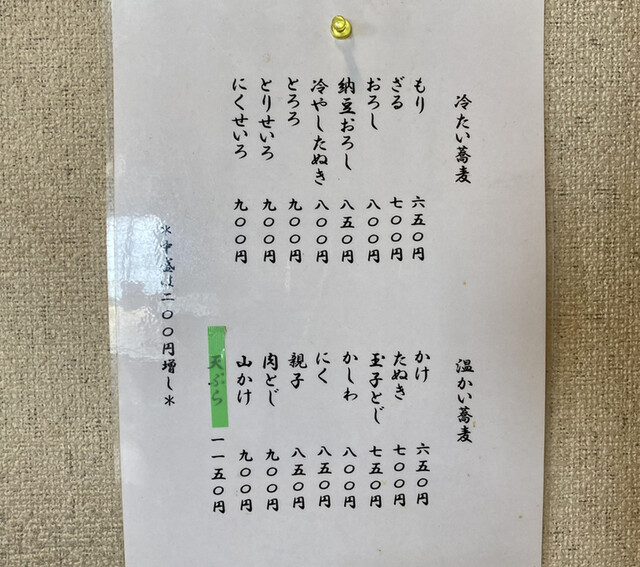 冷たい蕎麦
もり 六五〇円
ざる 七〇〇円
おろし 八〇〇円
納豆おろし 八五〇円
冷やしたぬき 八〇〇円
とろろ 九〇〇円
とりせいろ 九〇〇円
にくせいろ 九〇〇円
温かい蕎麦
かけ 六五〇円
たぬき 七〇〇円
玉子とじ 七五〇円
かしわ 八〇〇円
にく 八五〇円
親子 八五〇円
肉とじ 九〇〇円
山かけ 九〇〇円
天ぷら 一一五〇円
＊中盛は二〇〇円増し＊